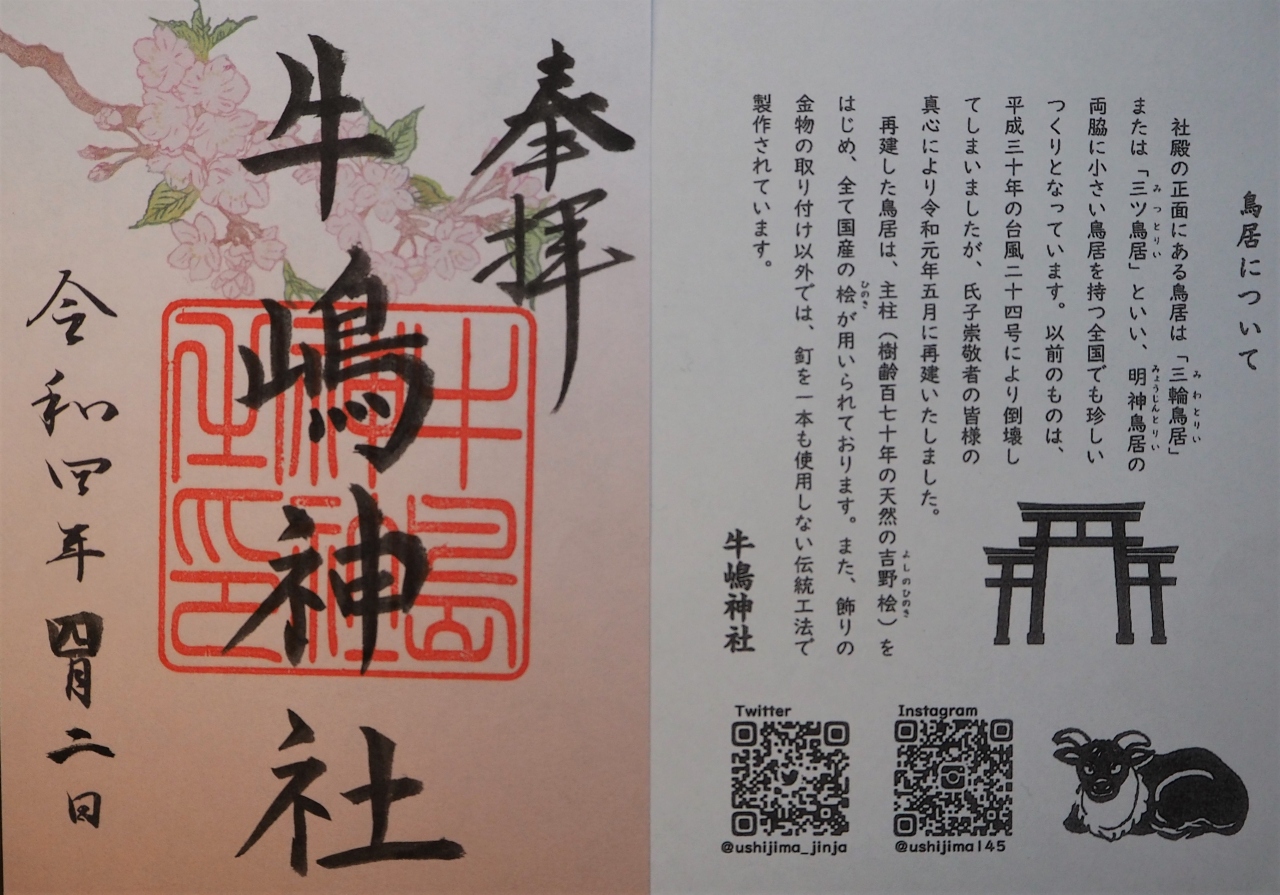 奉拝
牛嶋神社
令和四年四月二日
牛嶋神社印
鳥居について
社殿の正面にある鳥居は「三輪鳥居」
みわとりい
または「三ツ鳥居」といい、明神鳥居の
みつとりい
みょうじんとりい
両脇に小さい鳥居を持つ全国でも珍しい
つくりとなっています。以前のものは、
平成三十年の台風二十四号により倒壊し
てしまいましたが、氏子崇敬者の皆様の
真心により令和元年五月に再建いたしました。
再建した鳥居は、主柱（樹齢百七十年の天然の吉野桧）を
よしのひのき
はじめ、全て国産の桧が用いられております。また、飾りの
ひのき
金物の取り付け以外では、釘を一本も使用しない伝統工法で
製作されています。
牛嶋神社
Twitter
@ushijima_jinja
Instagram
@ushijima145